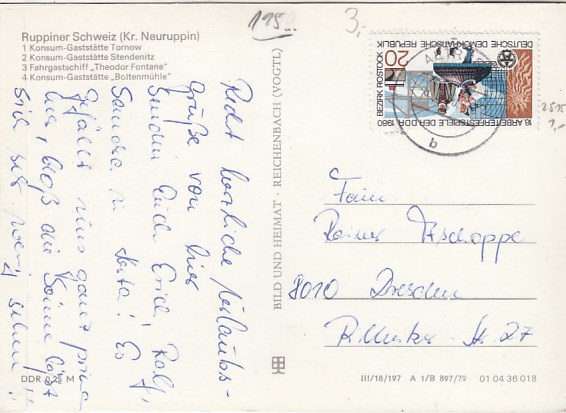 Ruppiner Schweiz (Kr. Neuruppin)
1 Konsum-Gaststätte Tornow
2 Konsum-Gaststätte Stendenitz
3 Fahrgastschiff „Theodor Fontane"
4 Konsum-Gaststätte „Boltenmühle"
Recht herzliche Urlaubs-
grüße von hier
senden Euch Erich, Ralf,
Sandra u. Jutta! Es
gefällt uns ganz prima
hier, bloß die Sonne läßt
sich sehr wenig sehen!
DDR 0,25 M
BILD UND HEIMAT · REICHENBACH (VOGTL)
195
3,-
DEUTSCHE DEMOKRATISCHE REPUBLIK
20
BEZIRK ROSTOCK
18. ARBEITERFESTSPIELE DER DDR 1980
b
2515
1,-
Fam
Rainer Tzschoppe
8010 Dresden
Str. 27
III/18/197 A 1/B 897/79 01 04 36 018